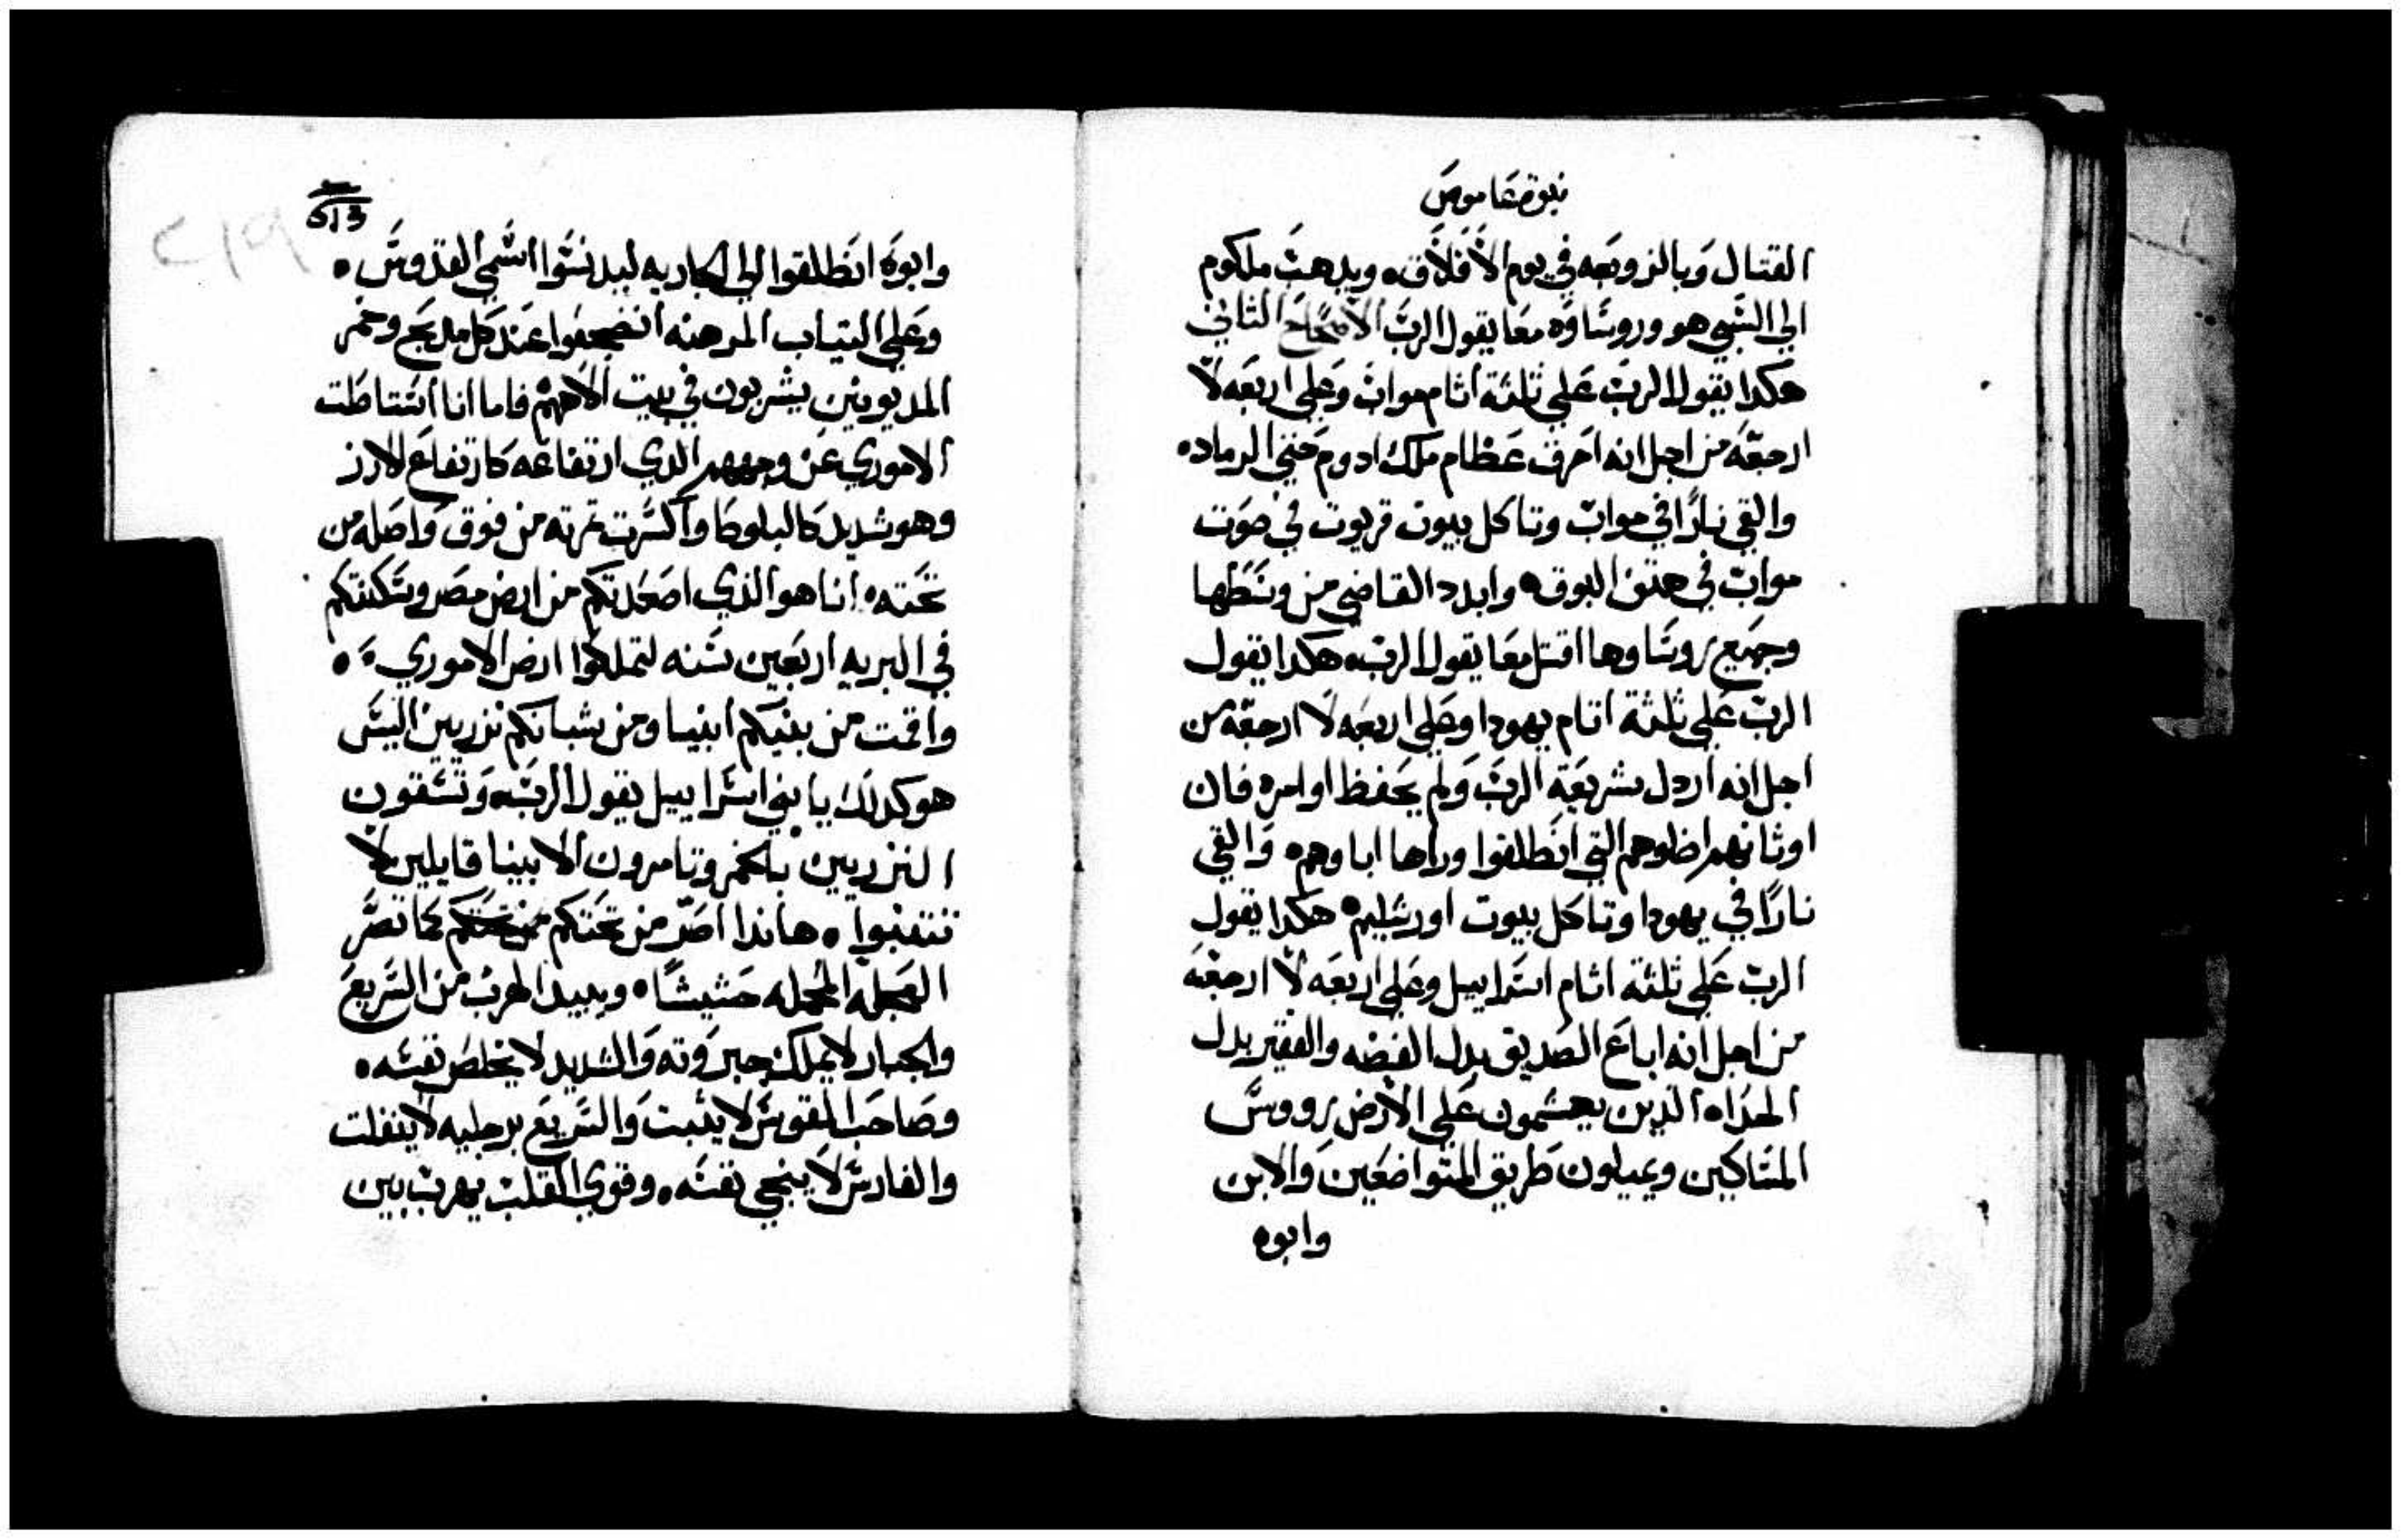 نبوة عاموص
القتال وبالزوبعه في يوم الأفلاق. ويدهب ملكوم
الى السبي هو وروساوه معا يقول الرب الأصحاح الثاني
هكدا يقول الرب على ثلثة اثام مواب وعلى اربعه لا
ارجعه من اجل انه احرق عظام ملك ادوم حتي الرماده
والقي نارًا في مواب وتاكل بيوت قريوت في صوت
مواب في هتف البوق. وابدد القاضي من وسطها
وجميع روساوها اقتل معا يقول الرب. هكدا يقول
الرب على ثلثة اتام يهودا وعلى اربعه لا ارجعه من
اجل انه اردل شريعة الرب ولم يحفظ اوامره فان
اوثانهم اضلوهم التي انطلقوا وراها اباوهم. والقي
نارًا في يهودا وتاكل بيوت اورشليم. هكدا يقول
الرب على ثلثة اثام اسراييل وعلى اربعه لا ارجعه
من اجل انه اباع الصديق بدل الفضه والفقير بدل
الحداه الدين يهشمون على الأرض رووس
المساكين ويميلون طريق المتواضعين والابن
وابوه
وابوه انطلقوا الى الجاريه ليدنسوا اسمي القدوس.
وعلى التياب المرهنه انضجعوا عند كل مدبح وخمر
المديونين يشربون في بيت الاههم فاما انا استاطلت
الاموري عن وجههم الدي ارتفاعه كارتفاع الارز
وهو شديد كالبلوطا واكسرت تمرته من فوق واصله من
تحته. انا هو الذي اصعدتكم من ارض مصر وسكنتكم
في البريه اربعين سنه لتملكوا ارض الاموري.
واقمت من بنيكم انبيا ومن شبانكم نزريين اليس
هو كدلك يا بني اسراييل يقول الرب. وتسقون
النزريين بالخمر وتامرون الانبيا قايلين لا
تتنبوا. هاندا اصر من تحتكم كما تصر
العجله المحمله حشيشًا. ويبيد الهرب من السريع
والجبار لا يملك جبروته والشديد لا يخلص نفسه.
وصاحب القوس لا يثبت والسريع برجليه لا ينفلت
والفارس لا ينجي نفسه. وقوي القلب يهرب بين